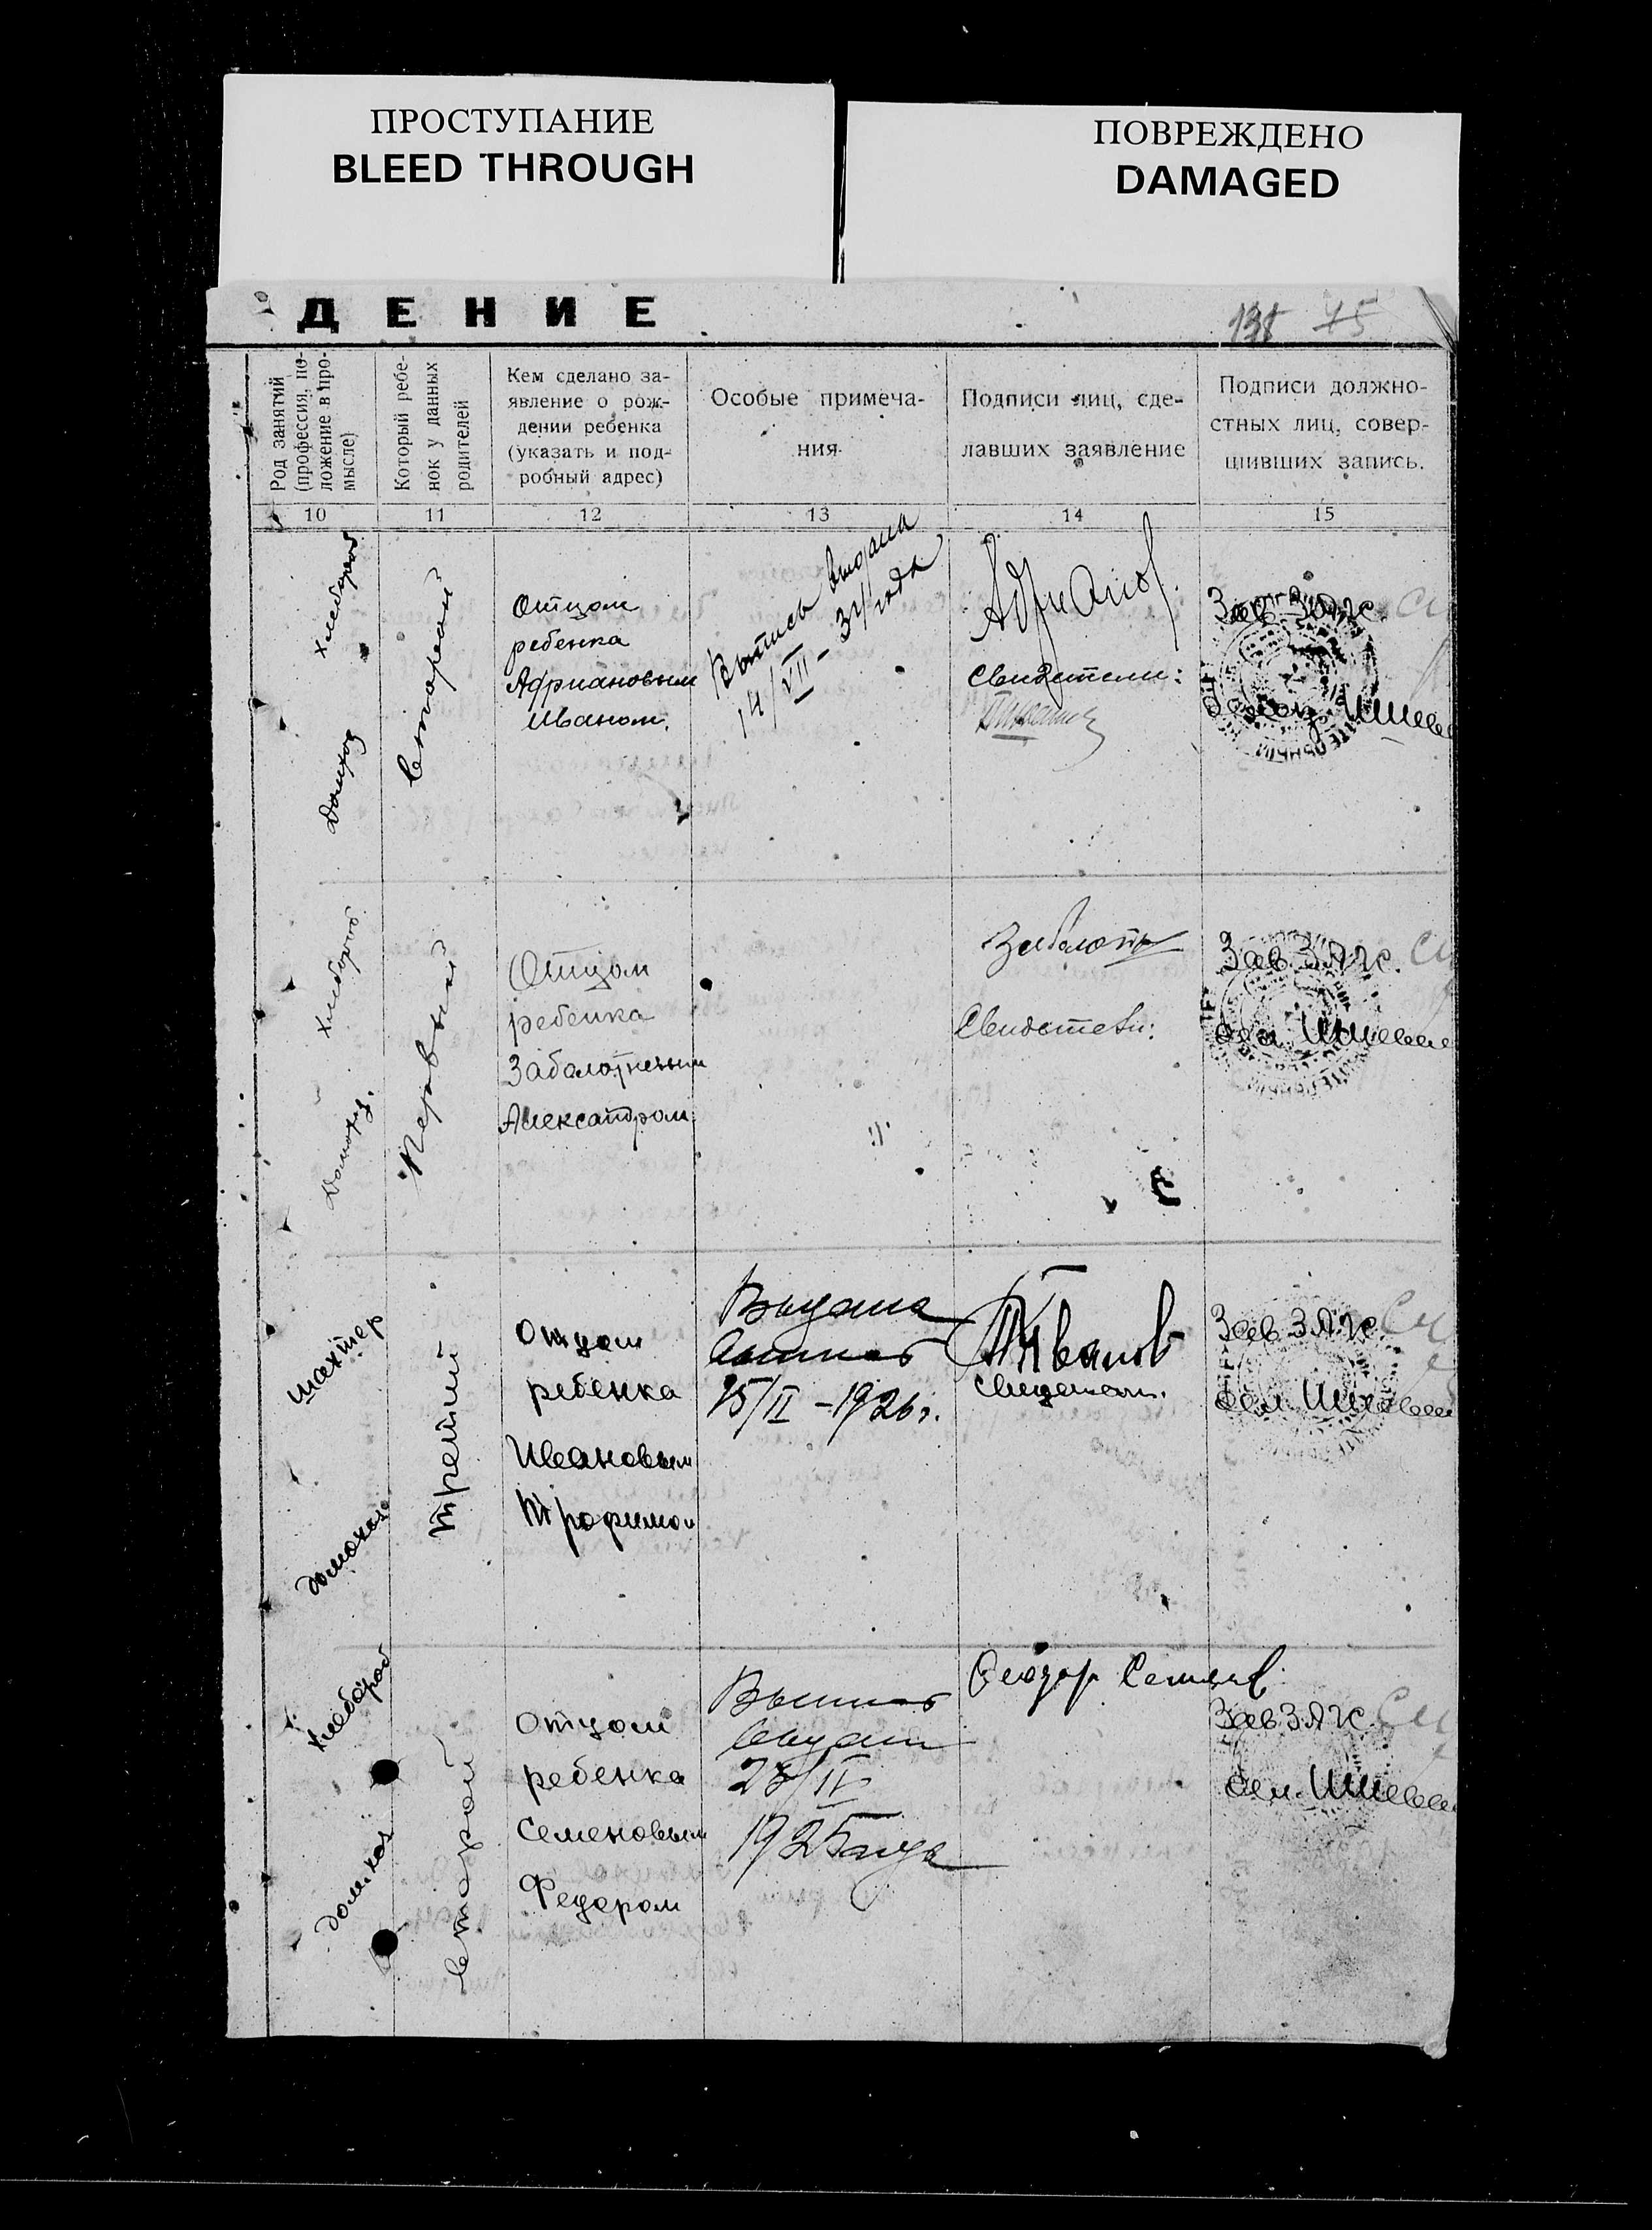 ПРОСТУПАНИЕ
BLEED THROUGH
ПОВРЕЖДЕНО
DAMAGED
ДЕНИЕ
138 75
Род занятий
(профессия, по-
ложение в про-
мысле)
Который ребе-
нок у данных
родителей
Кем сделано за-
явление о рож-
дении ребенка
(указать и под-
робный адрес)
Особые примеча-
ния
Подписи лиц, сде-
лавших заявление
Подписи должно-
стных лиц, совер-
шивших запись.
10
11
12
13
14
15
хлебороб
Домхоз
второй
Отцом
ребенка
Адриановым
Иваном.
Выпись выдана
14/VII - 32 года
Адрианов
Свидетели:
Зав. ЗАГС.
хлебороб
Домохоз.
Первый
Отцом
ребенка
Заболотневым
Александром
Заболотн
Свидетели:
Зав. ЗАГС.
шахтер
домохоз
третий
Отцом
ребенка
Ивановым
Трофимом
Выдана
выпись
25/II - 1926 г.
Т Иванов
свидетели.
Зав. ЗАГС.
хлебороб
дом.хоз
второй
Отцом
ребенка
Семеновым
Федором
Выпись
выдана
28/IV
1925 года
Феодор Семенов
Зав ЗАГС.